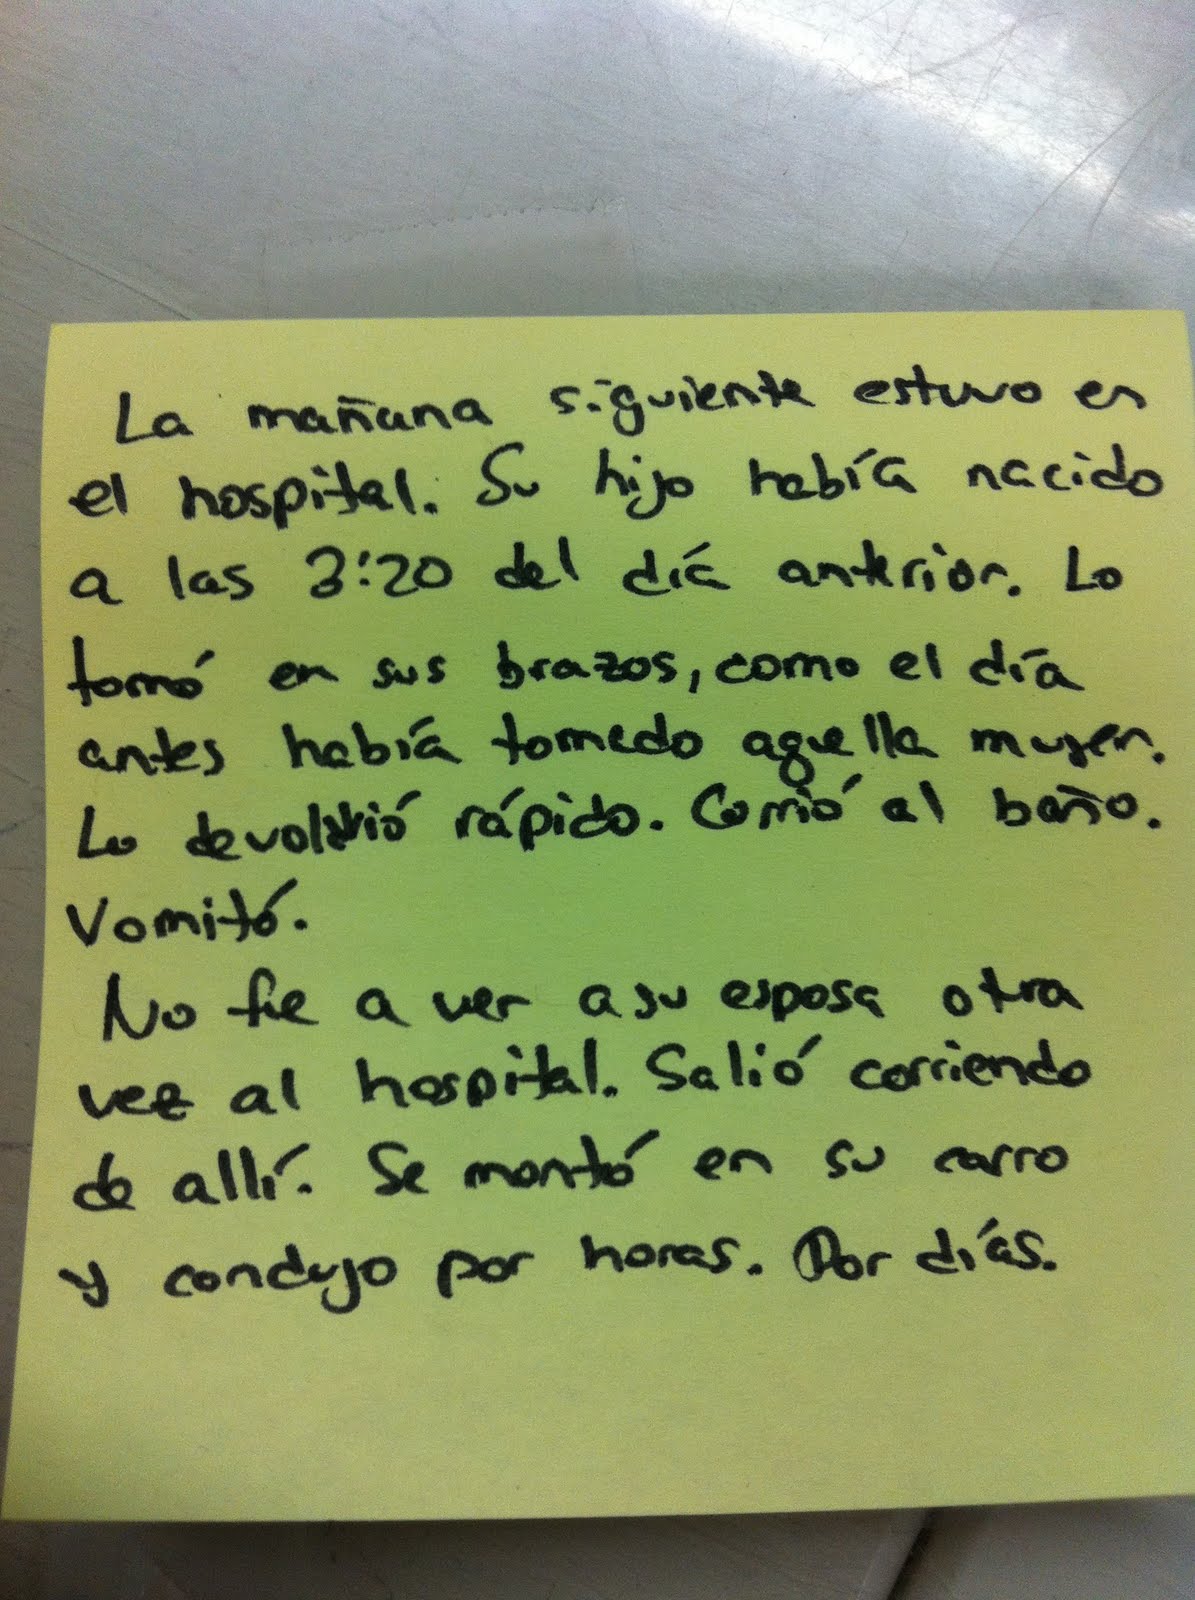 La mañana siguiente estuvo en
el hospital. Su hijo había nacido
a las 3:20 del día anterior. Lo
tomó en sus brazos, como el día
antes había tomado aquella mujer.
Lo devolvió rápido. Corrió al baño.
Vomitó.
No fue a ver a su esposa otra
vez al hospital. Salió corriendo
de allí. Se montó en su carro
y condujo por horas. Por días.